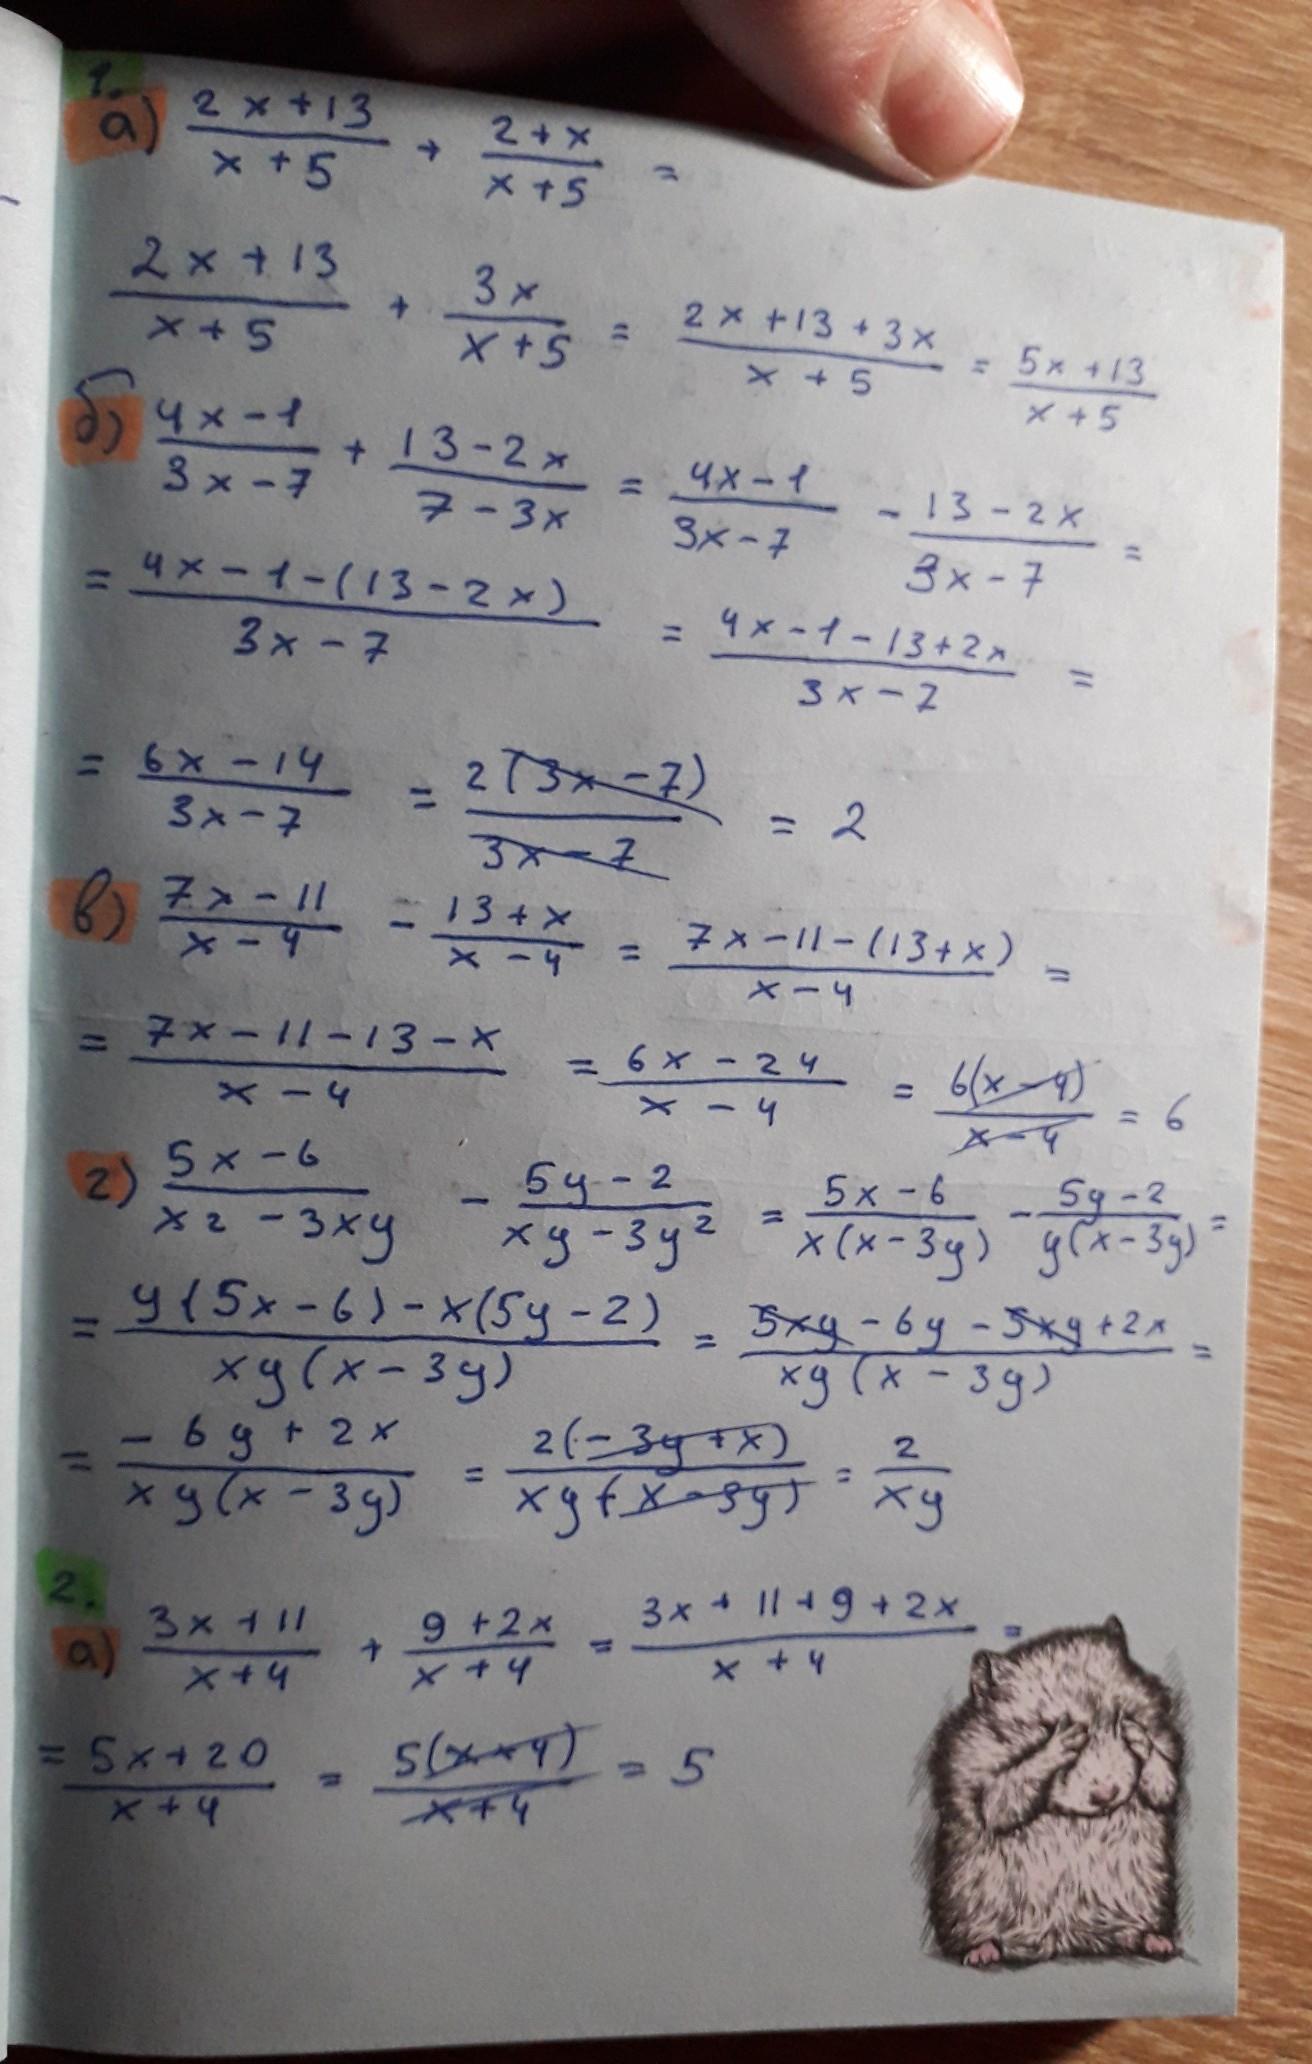 1.
а) (2x+13)/(x+5) + (2+x)/(x+5) =
(2x+13)/(x+5) + 3x/(x+5) = (2x+13+3x)/(x+5) = (5x+13)/(x+5)
б) (4x-1)/(3x-7) + (13-2x)/(7-3x) = (4x-1)/(3x-7) - (13-2x)/(3x-7) =
= (4x-1-(13-2x))/(3x-7) = (4x-1-13+2x)/(3x-7) =
= (6x-14)/(3x-7) = 2(3x-7)/(3x-7) = 2
в) (7x-11)/(x-4) - (13+x)/(x-4) = (7x-11-(13+x))/(x-4) =
= (7x-11-13-x)/(x-4) = (6x-24)/(x-4) = 6(x-4)/(x-4) = 6
г) (5x-6)/(x2-3xy) - (5y-2)/(xy-3y²) = (5x-6)/(x(x-3y)) - (5y-2)/(y(x-3y)) =
= (y(5x-6)-x(5y-2))/(xy(x-3y)) = (5xy-6y-5xy+2x)/(xy(x-3y)) =
= (-6y+2x)/(xy(x-3y)) = 2(-3y+x)/(xy(x-3y)) = 2/(xy)
2.
а) (3x+11)/(x+4) + (9+2x)/(x+4) = (3x+11+9+2x)/(x+4) =
= (5x+20)/(x+4) = 5(x+4)/(x+4) = 5